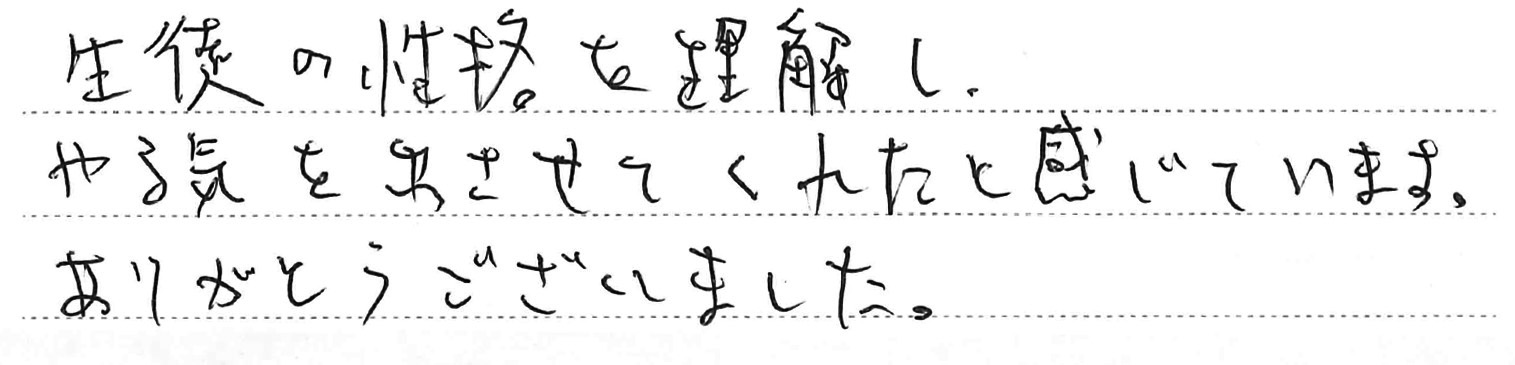 生徒の性格を理解し、
やる気を出させてくれたと感じています。
ありがとうございました。